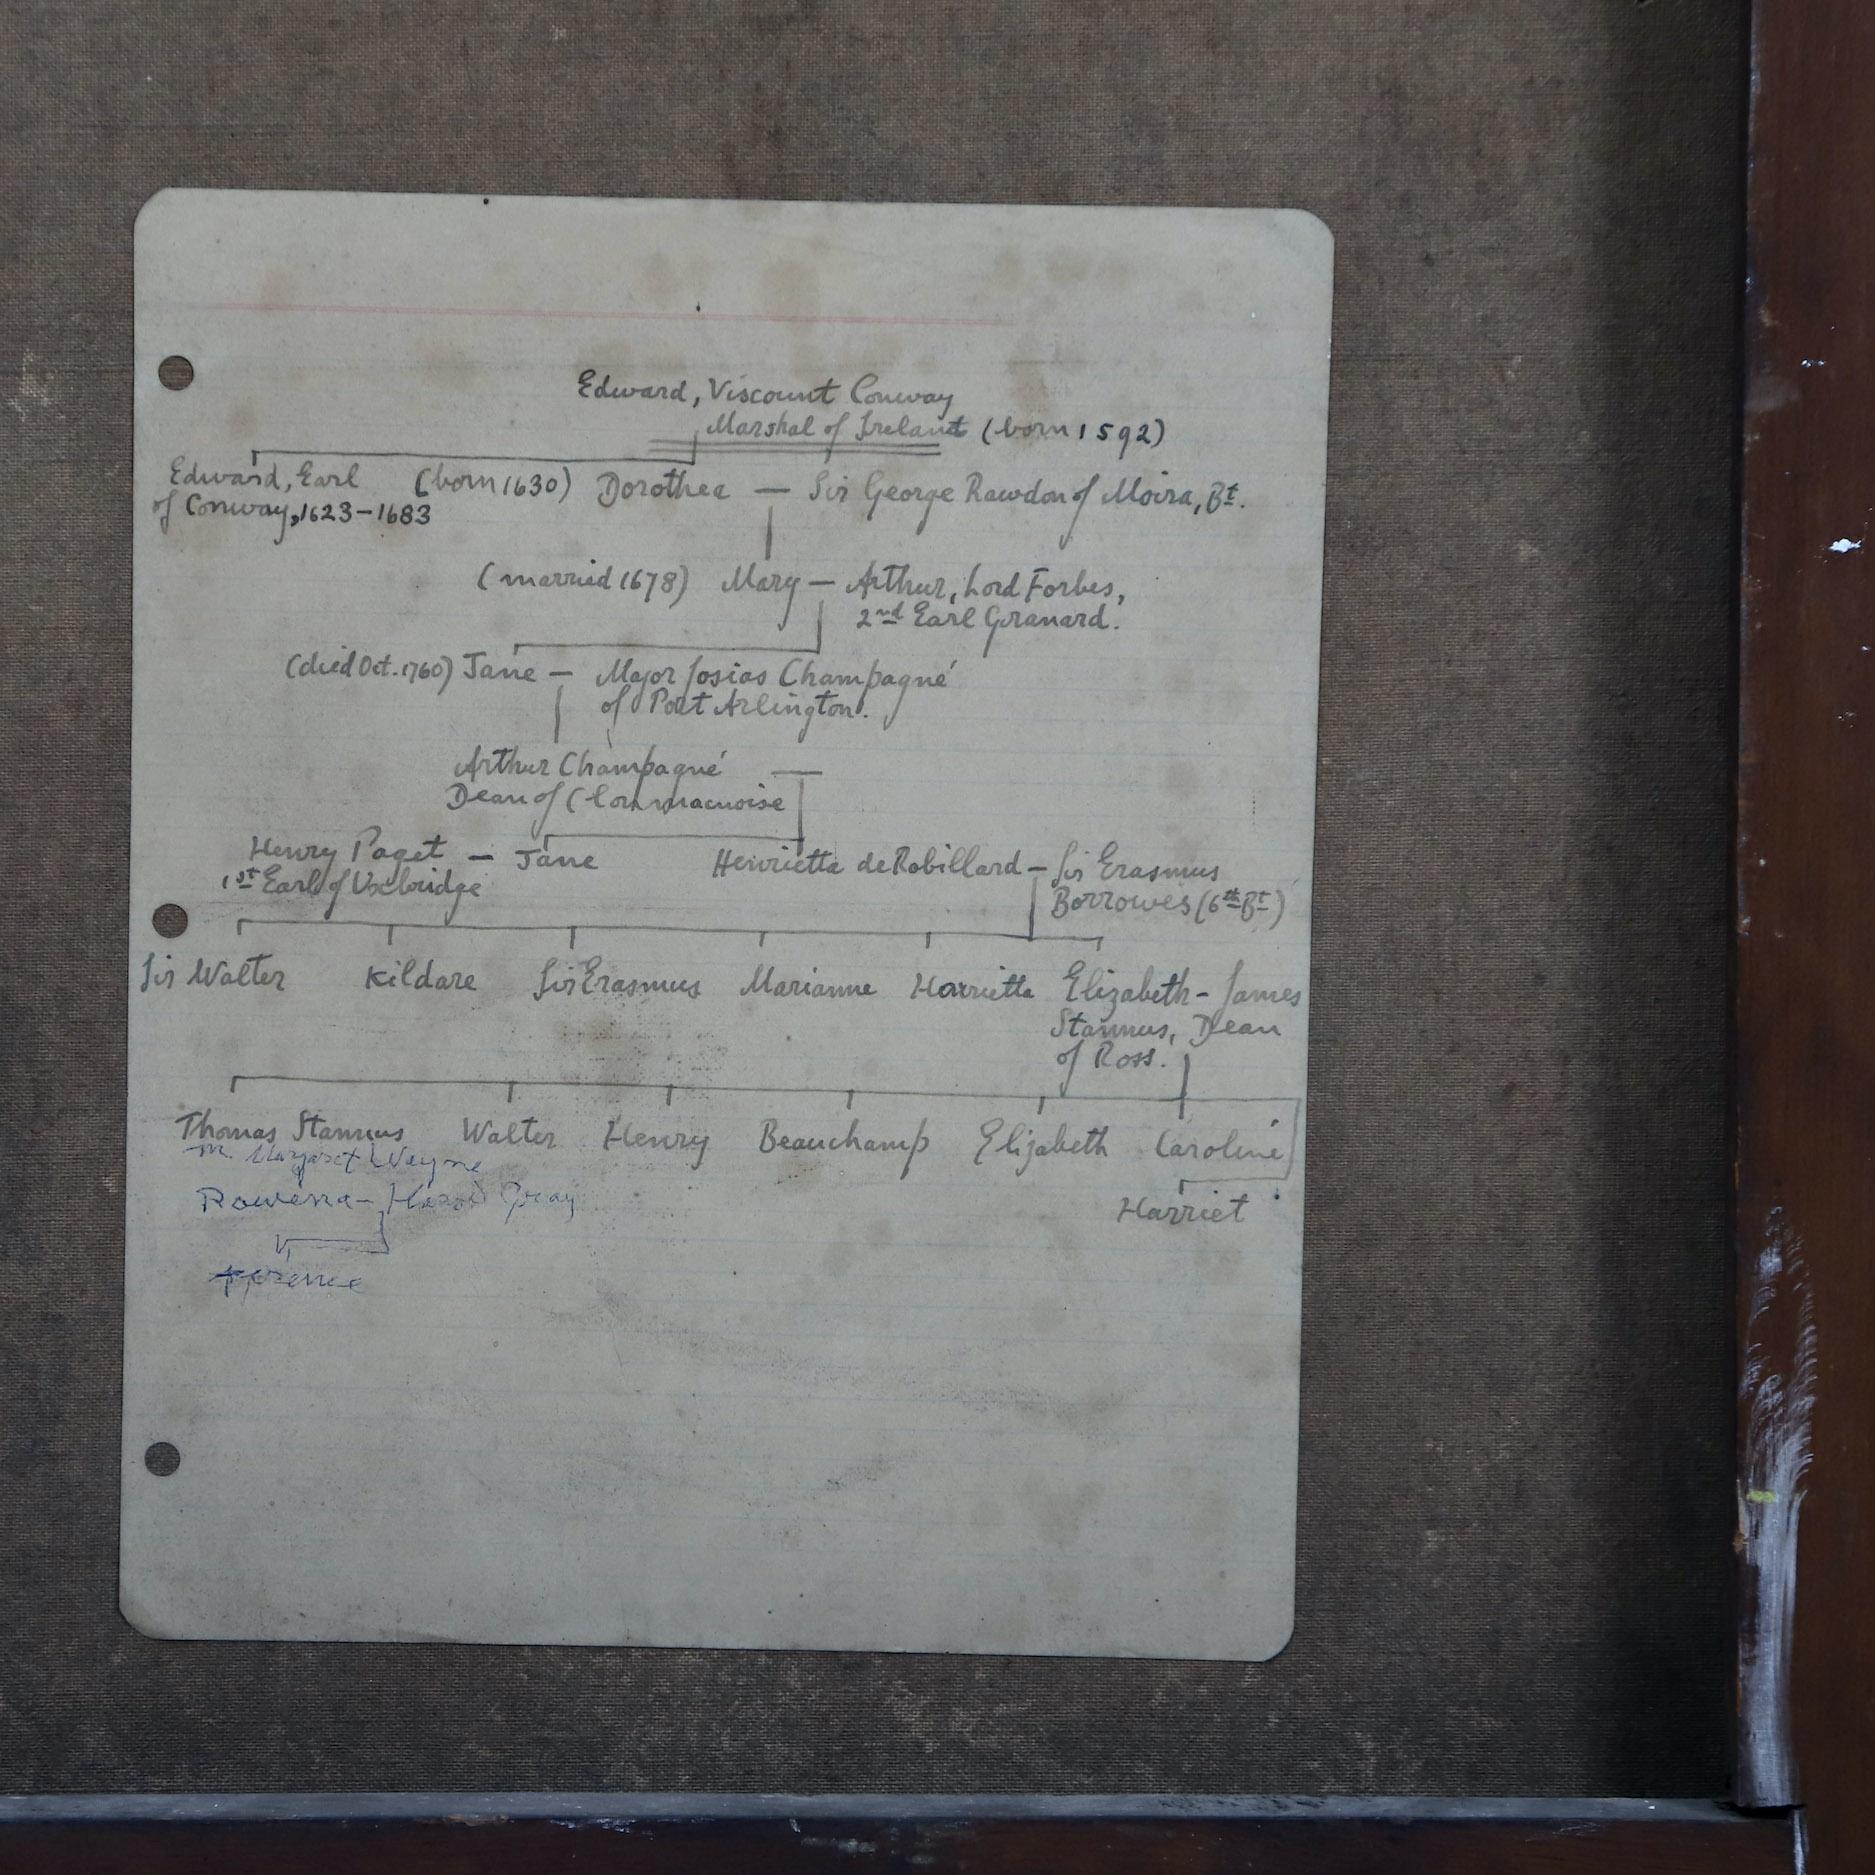 Edward, Viscount Conway
Marshal of Ireland (born 1592)
Edward, Earl (born 1630) Dorothea — Sir George Rawdon of Moira, Bt.
of Conway, 1623-1683
(married 1678) Mary — Arthur, Lord Forbes,
2nd Earl Granard.
(died Oct. 1760) Jane — Major Josias Champagné
of Port Arlington.
Arthur Champagné —
Dean of Clonmacnoise
Henry Paget — Jane Henrietta de Robillard — Sir Erasmus
1st Earl of Uxbridge Borrowes (6th Bt)
Sir Walter Kildare Sir Erasmus Marianne Harrietta Elizabeth - James
Stannus, Dean
of Ross.
Thomas Stannus Walter Henry Beauchamp Elizabeth Caroline
m. Margaret Wayne
Rowena - Harold Gray
Harriet
Terence